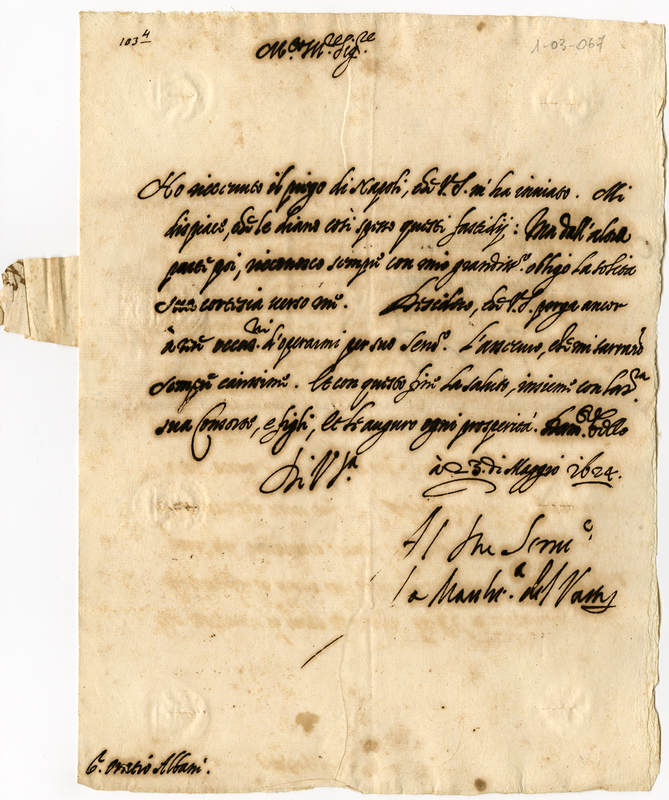 103 4
1-03-067
M.to Ill.re Sig.re
Ho riceuuto il piego di Napoli, che V.S. m'ha inuiato. Mi
dispiace, che le diano così spesso questi fastidij: Ma dall'altra
parte poi, riconosco sempre con mio grandiss.o obligo la solita
sua cortesia verso me. Desidero, che V.S. porga ancor
à me occas.ni d'operarmi per suo seru.o L'assicuro, che mi saranno
sempre carissime. Et con questo fine la saluto, insieme con la
sua Consorte, e figli, et le auguro ogni prosperità.
Di V S.a à 23. di Maggio 1624.
Al suo Serui.o
la March.a del Vasto
S. Oratio Albani.